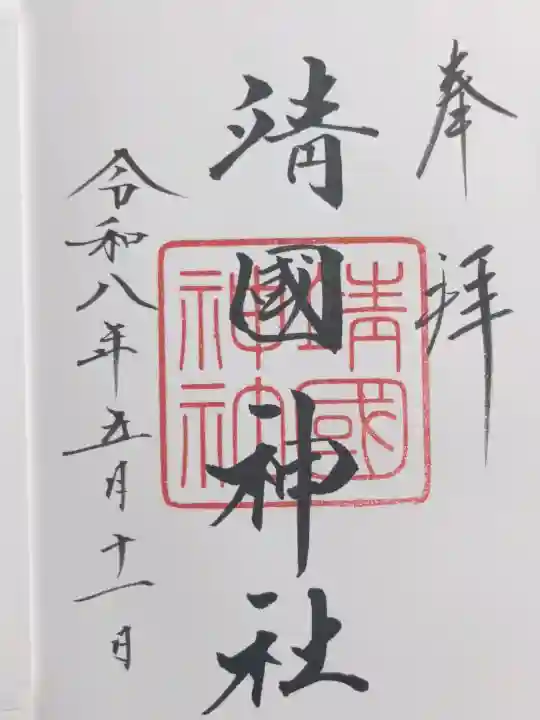 奉拝
靖國神社
靖國
神社
令和八年五月十一日